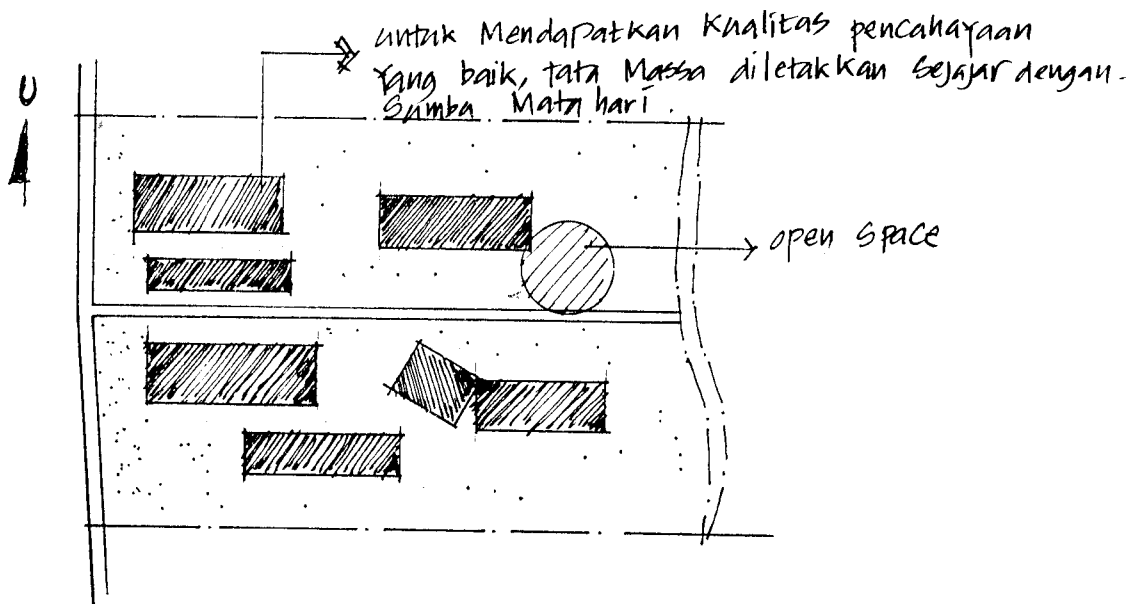 untuk Mendapatkan Kualitas pencahayaan
Yang baik, tata Massa diletakkan Sejajar dengan
Sumba Matahari.
U
open space